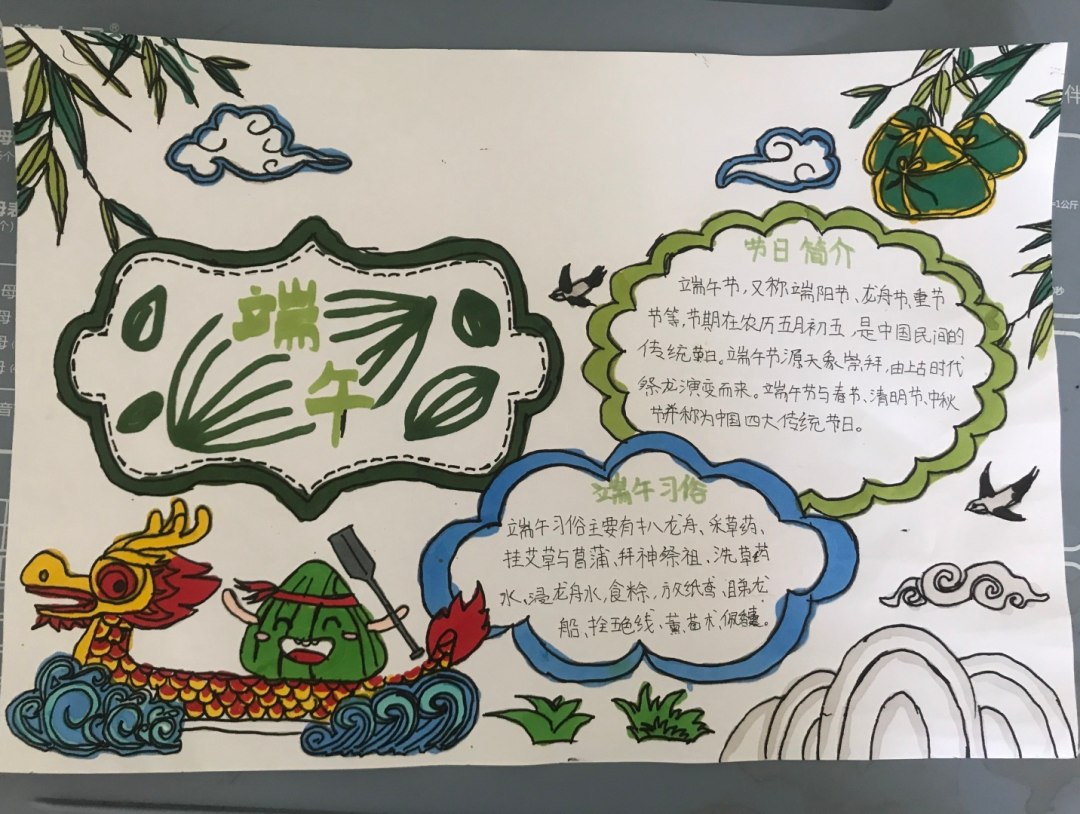 端
午
节日简介
端午节,又称端阳节、龙舟节、重节
节等,节期在农历五月初五,是中国民间的
传统节日。端午节源天象崇拜,由上古时代
祭龙演变而来。端午节与春节、清明节、中秋
节并称为中国四大传统节日。
端午习俗
端午习俗主要有扒龙舟、采草药、
挂艾草与菖蒲、拜神祭祖、洗草药
水、浸龙舟水,食粽,放纸鸢、睇龙
船、拴五色线、薰苍术、佩香囊。